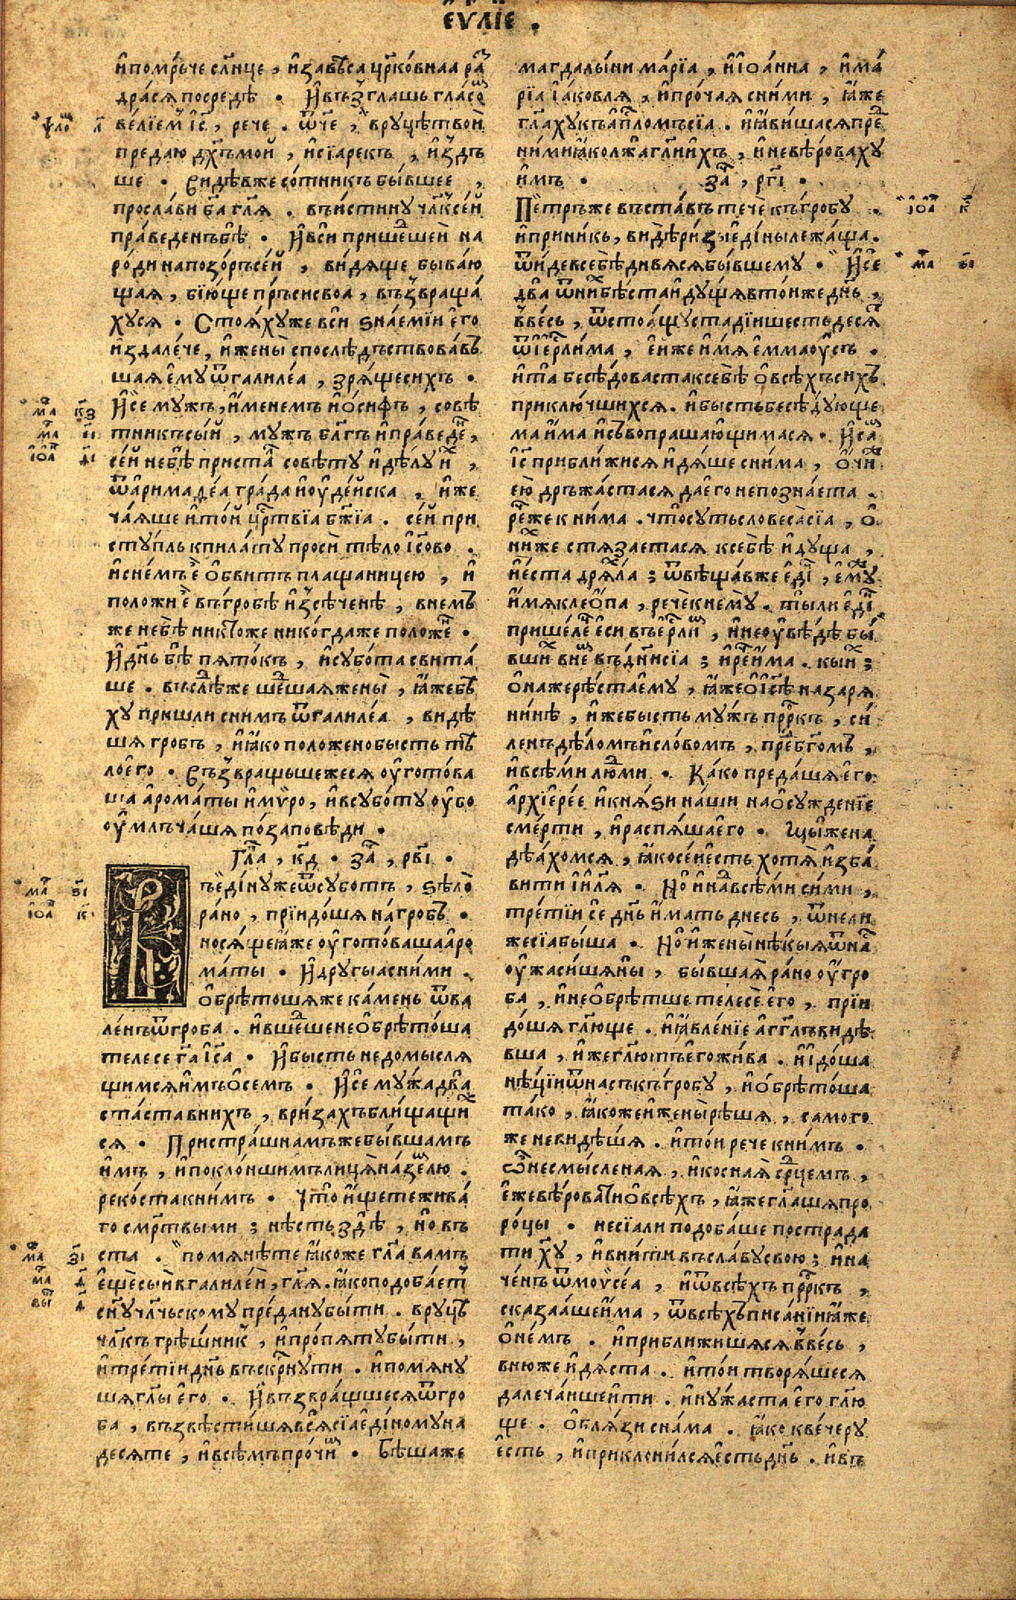 еѵⷢ҇лїе .
и҆помръ́че сл҃нце , и҆заве́са цр҃ко́внаа раⷥ҇
дра́ся посредѣ̀ . И҆въⷥ҇гла́шь гла́соⷨ
ве́лїемⸯ і҃с , рече . ѿч҃е , вⸯруцѣ твои̑
предаю̀ дх҃ъ мой , и҆сїа рекъ , и҆́здъ
ше . Видѣвже со́тникъ бы́вшее ,
просла́ви ба҃ гл҃я . въи́стину чл҃кⸯсе́й
пра́веденъ бѣ̀ . И҆вси прише́дшеи на
ро́ди напозо́ръ се́й , ви́дяще быва́ю
щая , бїю́ще пръ́си своа̀ , възвраща́
хуся . Стоя́хуже всѝ ѕна́емїи е҆го̀
и҆здале́че , и҆жены̀ спослѣ́дъствова́вⸯ
шая е҆му̀ ѿгалиле́а , зря́ще сихъ .
И҆се мужъ , и҆́менемъ и҆о́сифъ , совѣ́
тникъ сы́й , му́жъ бл҃гъ и҆пра́ведеⷩ ,
се́й небѣ̀ приста́лⸯ совѣ́ту и҆дѣ́лу и҆ⷯ ,
ѿа҆римаѳе́а гра́да и҆оу҆де́йска , и҆́же
ча́яше и҆то́й црⷭ҇твїа бж҃їа . се́й при
сту́пль кпила́ту просѝ тѣ́ло і҆с҃ово .
и҆сне́мъ е҆̀ о҆бви́тъ плащани́цею , и҆
положи̑ е҆̀ въгро́бѣ и҆зⸯсѣ́ченѣ , внемъ
же небѣ̀ никто́же нико́гдаже поло́жеⷩ .
И҆дн҃ь бѣ̀ пято́къ , и҆субо́та свита́
ше . въслѣ́дⸯже ше́дшая жены̀ , я҆́же бѣ
ху пришлѝ снимъ ѿгалиле́а , ви́дѣ
шя гробъ , и҆я҆́ко положено бысть тѣ
ло е҆го . Възвра́щьшежеся оу҆гото́ва
ша а҆рома́ты и҆мѵ́ро , и҆всубо́ту оу҆бо
оу҆млъча́шя по́заповѣди .
Глаⷡ҇ , к҃д . Заⷱ҇ , рв҃і .
ъ е҆ди́ну же ѿсуботъ , ѕѣло̀
ра́но , прїидо́шя на́гробъ .
нося́ще я҆́же оу҆гото́ваша аро
ма́ты . И҆другы́а сни́ми .
о҆брѣто́шяже ка́мень ѿва
ле́нъ ѿгроба . и҆вше́дше не о҆брѣто́ша
телесе г҃а і҆с҃а . И҆бысть недомысля
щимся и҆мъ о҆семъ . И҆се му́жа два̀
ста́ста вни́хъ , ври́захъ блища́щиⷯ
ся . Пристра́шнамъ же бы́вшамъ
и҆́мъ , и҆покло́ншимъ лица̀ на́землю .
реко́ста кни́мъ . Что̀ и҆́щете жива́
го сме́ртвыми ; нѣсть здѣ̀ , но̀ въ
ста . помянѣ́те я҆́коже гл҃а вамъ
е҆щѐ сы́й вгалиле́и , гл҃я . я҆́ко подоба́етⸯ
сн҃у чл҃чьскому пре́дану бы́ти . вруцѣ
чл҃къ грѣ́шникⸯ , и҆про́пяту бы́ти ,
и҆тре́тїи дн҃ь въскрⷭ҇нути . и҆помяну
шя гл҃ы е҆го̀ . И҆възвра́щшеся ѿгро
ба , възвѣсти́шя вся̀ сїа̀ е҆ди́ному на
десяте , и҆всѣ́мъ про́чиⷨ . Бѣ́шаже
магдалы́ни ма́рїа , и҆і҆оа́нна , и҆ма́
рїа і҆а́ковля , и҆про́чая сни́ми , я҆́же
гл҃аху къ а҆пⷭ҇ломъ сїа . и҆я҆ви́шася преⷣ
ни́ми я҆́ко лжа̀ гл҃и и҆́хъ , и҆невѣ́роваху
и҆́мъ . Заⷱ҇ , рг҃і .
Пе́тръже въста́въ течѐ къгро́бу .
и҆прини́къ , ви́дѣ ри́зы е҆ди́ны лежа́ща .
ѿи́де всебѣ̀ дивя́ся бы́вшему . И҆се
два̀ ѿни́хⸯ бѣ́ста и҆ду́щя вто́иже дн҃ь ,
ввесь , ѿстоя́щу ста́дїи шестьдеся́тⸯ
ѿі҆ерⷭ҇ли́ма , е҆́йже и҆́мя е҆ммао́усъ .
и҆та̀ бесѣ́доваста ксебѣ̀ о҆всѣ́хъ си́хъ
приклю́чшихся . и҆бысть бесѣ́дующе
ма и҆́ма и҆съвопраша́ющимася . И҆саⷨ
і҃с прибли́жися и҆дя́ше сни́ма , о҆́чи
ею̀ дръжа́стася да е҆го непозна́ета .
рече́же к ни́ма . что̀ су́ть словеса̀ сїа , о҆
ни́хже стяза́етася ксебѣ̀ и҆ду́ща ,
и҆е́ста дря́хла ; ѿвѣща́вже е҆ди́нⸯ , е҆му́ⷤ
и҆́мя клео́па , речѐ кнему̀ . ты́ ли е҆ди́нⸯ
прише́леⷰ҇ е҆сѝ въ е҆рⷭ҇ли́мⸯ , и҆не оу҆вѣ́дѣ бы́
вшиⷯ вне́мⸯ въдн҃и сїа ; и҆рече и҆́ма . кы́иⷯ ;
о҆на́же рѣ́ста е҆му̀ , я҆́же о҆ і҆с҃ѣ назаря
ни́нѣ , и҆́же бысть му́жъ прⷪ҇ркъ , си́
ленъ дѣ́ломъ и҆сло́вомъ , преⷣ бг҃омъ ,
и҆всѣ́ми лю́дми . Ка́ко преда́шя е҆го
а҆рхїере́е и҆кня́ѕи на́ши на о҆сужде́нїе
сме́рти , и҆распя́ша е҆го . Мы́же на
дѣ́ахомся , я҆́ко се́й е҆́сть хотя́ и҆зба́
вити і҆и҃ля . Но̀ и҆надⸯ всѣ́ми си́ми ,
тре́тїи се́ дн҃ь и҆́мать днесь , ѿнели
же сїа бы́ша . Но̀ и҆жены̀ нѣ́кыя ѿна́сⸯ
оу҆жаси́шя ны̀ , бы́вшая ра́но оу҆гро
ба , и҆не о҆брѣ́тше телесѐ е҆го̀ , прїи
до́шя гл҃юще . и҆я҆вле́нїе а҆гг҃лъ ви́дѣ
вша , и҆́же гл҃ютъ е҆го жи́ва . и҆и҆до́ша
нѣ́цїи ѿна́съ къгро́бу , и҆о҆брѣто́ша
та́ко , я҆́коже и҆жены̀ рѣ́шя , самого
же неви́дѣшя . и҆то́и рече кни́мъ .
ѽ несмы́сленая , и҆ко́сная срⷣцемъ ,
е҆́же вѣ́ровати о҆всѣ́хъ , я҆́же гл҃ашя про
ро́цы . не сїа ли подоба́ше пострада
ти хⷭ҇у , и҆вни́ти въсла́ву свою̀ ; и҆на
че́нъ ѿмоѷсе́а , и҆ѿвсѣ́хъ прⷪ҇ркъ ,
сказа́аше и҆́ма , ѿвсѣ́хъ писа́нїи я҆́же
о҆не́мъ . и҆прибли́жишяся ввесь ,
вню́же и҆дя́ста . и҆то́и творя́шеся
дале́чаише и҆ти̑ . и҆ну́жаста е҆го гл҃ю
ще . о҆бля́зи сна́ма . я҆́ко кве́черу
е҆́сть , и҆приклони́лся е҆́сть дн҃ь . и҆въ